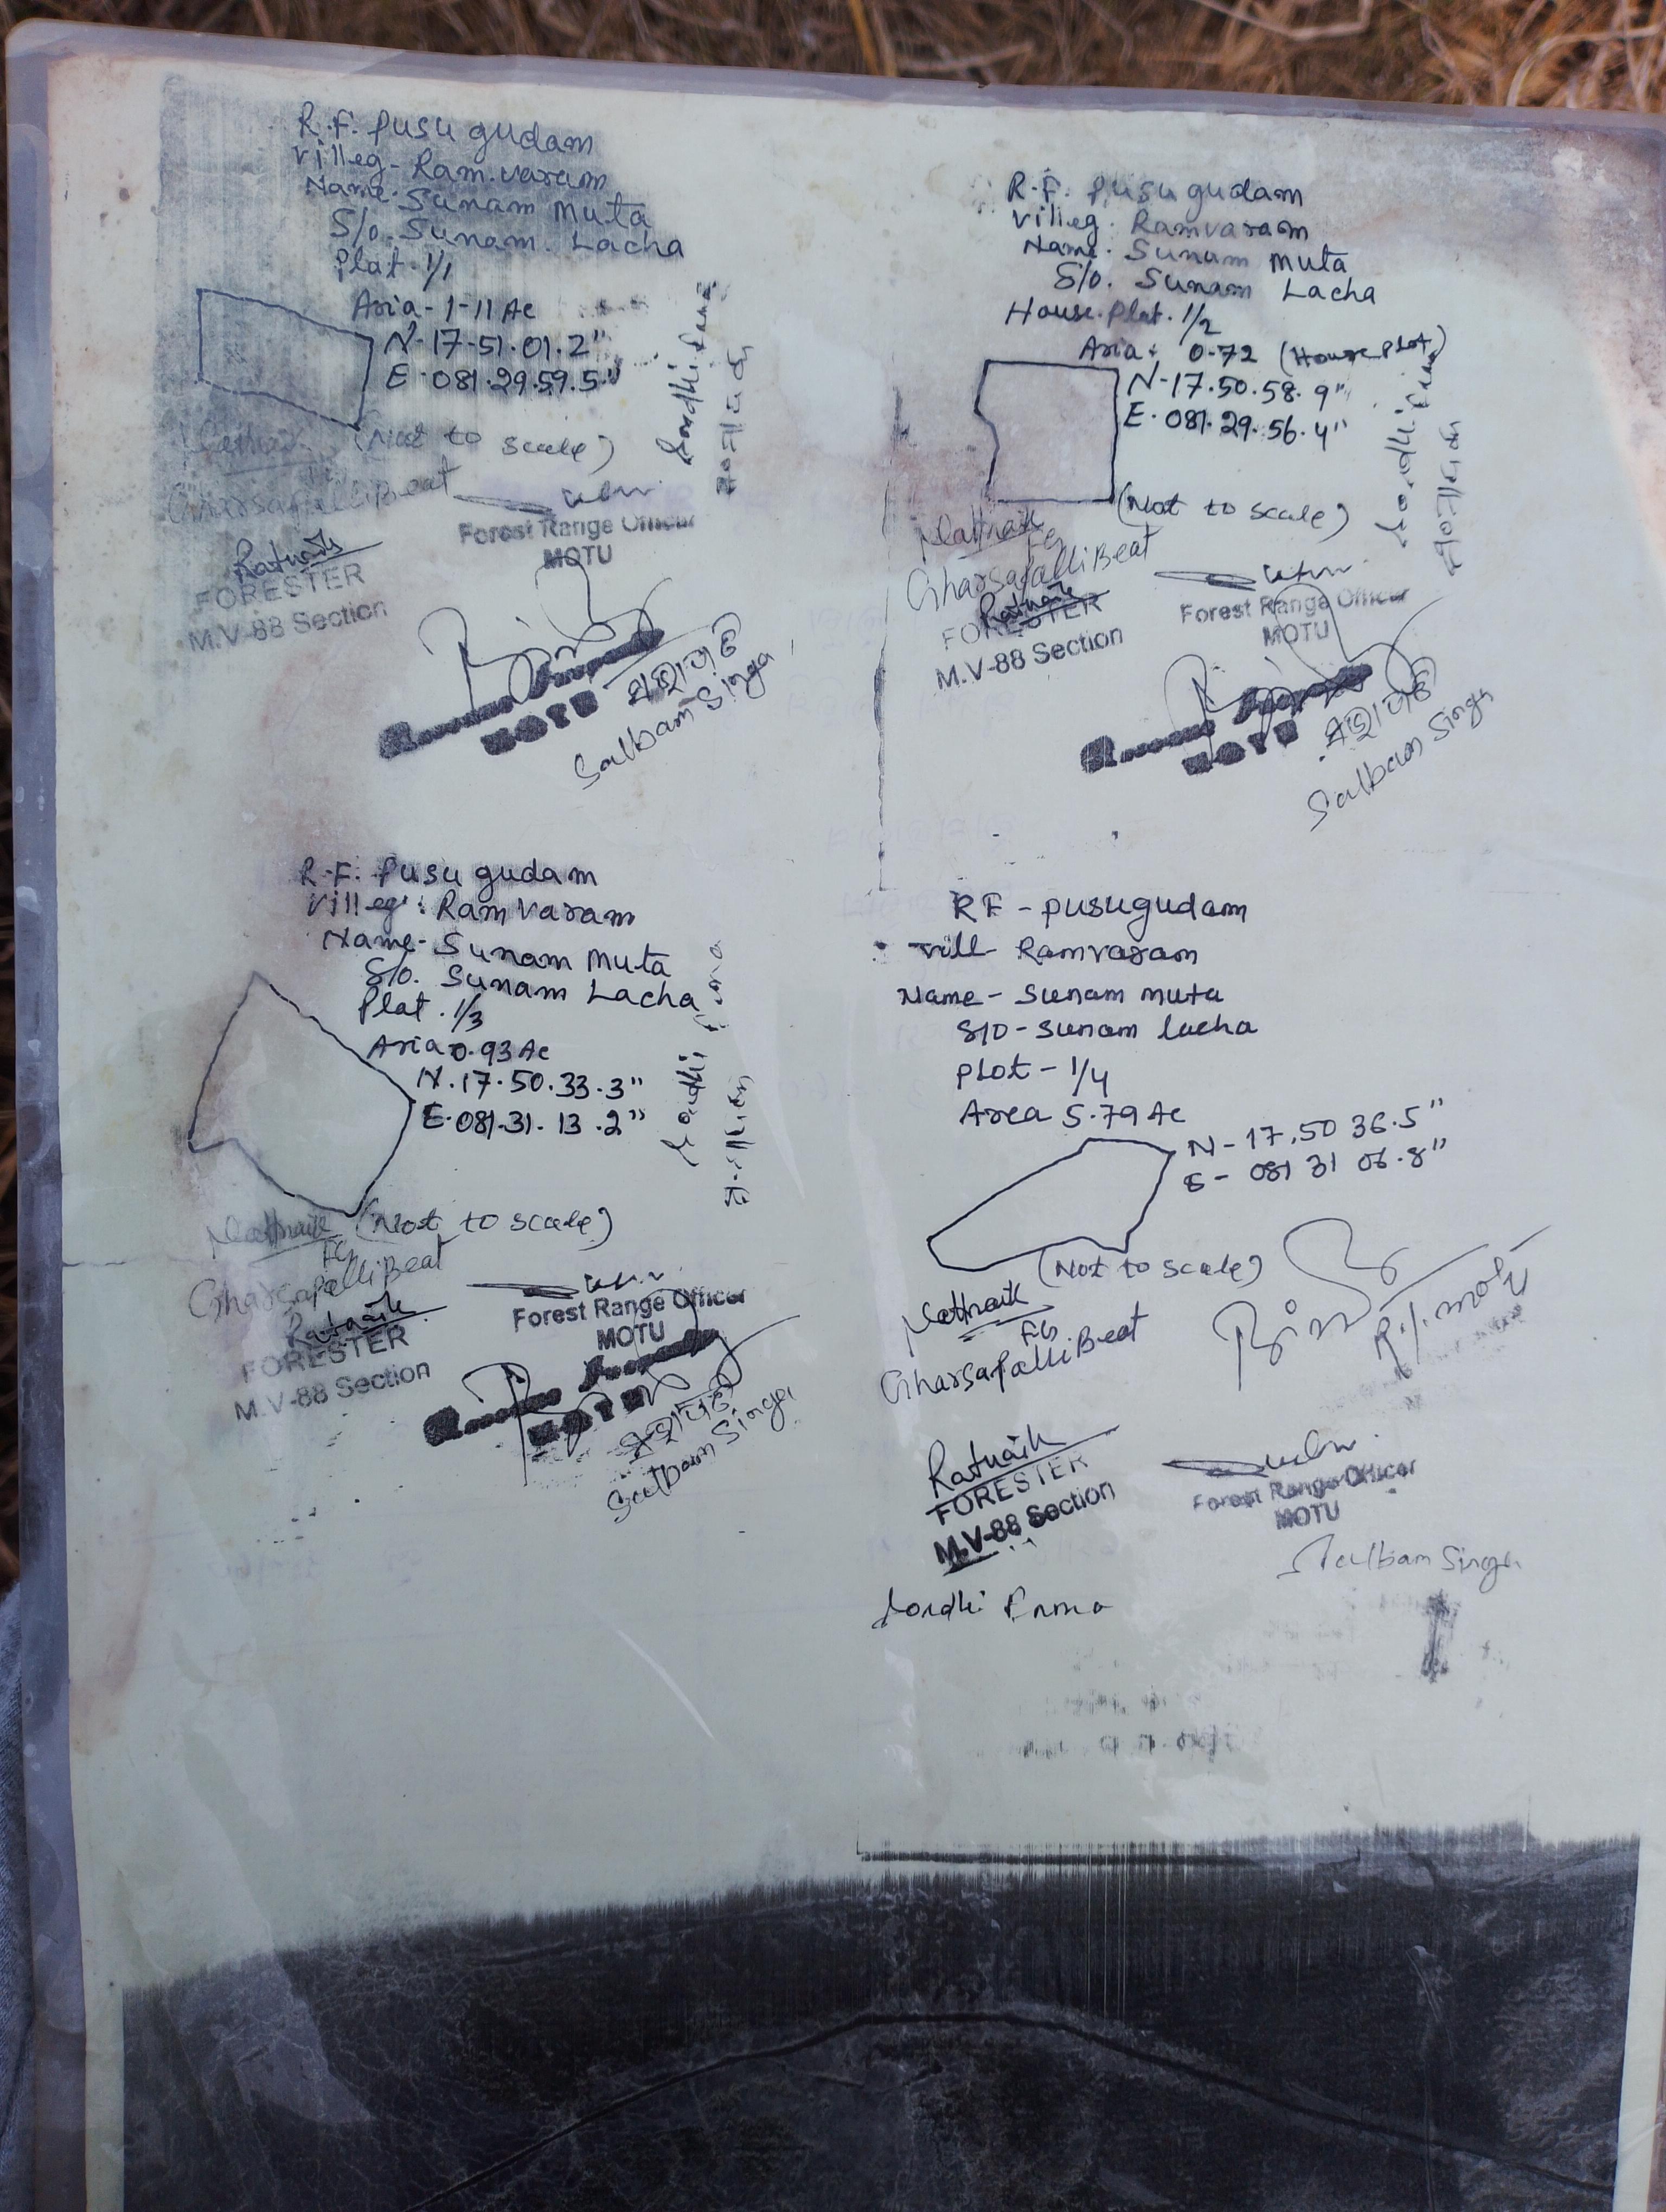 R.F. Pusu gudam
Villeg - Ram.varam
Name. Sunam Muta
S/o. Sunam. Lacha
Plat. 1/1
Aria - 1-11 Ac
N-17-51.01.2"
E-081.29.59.5"
(Not to scale)
GharsapalliBeat
Forest Range Officer
MOTU
Ratnaik
FORESTER
M.V-88 Section
MOTU
Salbam Singa
R.F. Pusu gudam
Villeg. Ramvaram
Name. Sunam Muta
S/o. Sunam Lacha
House. Plat. 1/2
Aria. 0.72 (House Plot)
N-17.50.58.9"
E.081.29.56.4"
(Not to scale)
Nattnaik
FG
GharsapalliBeat
Ratnaik
FORESTER
M.V-88 Section
Forest Range Officer
MOTU
MOTU
Salbam Singa
R.F. Pusu gudam
Villeg: Ram Varam
Name- Sunam Muta
S/o. Sunam Lacha
Plat. 1/3
Aria 0.93 Ac
N.17.50.33.3"
E.081.31.13.2"
(Not to scale)
Nattnaik
FG
GharsapalliBeat
Ratnaik
FORESTER
M.V-88 Section
Forest Range Officer
MOTU
MOTU
Salbam Singa
RF - pusugudam
vill- Ramvaram
Name - Sunam muta
S/O - Sunam lacha
Plot - 1/4
Area 5.79 Ac
N - 17.50 36.5"
E - 081 31 06.8"
(Not to scale)
Nattnaik
FG
GharsapalliBeat
R.I. Motu
Ratnaik
FORESTER
M.V-88 Section
Forest Range Officer
MOTU
Salbam Singa